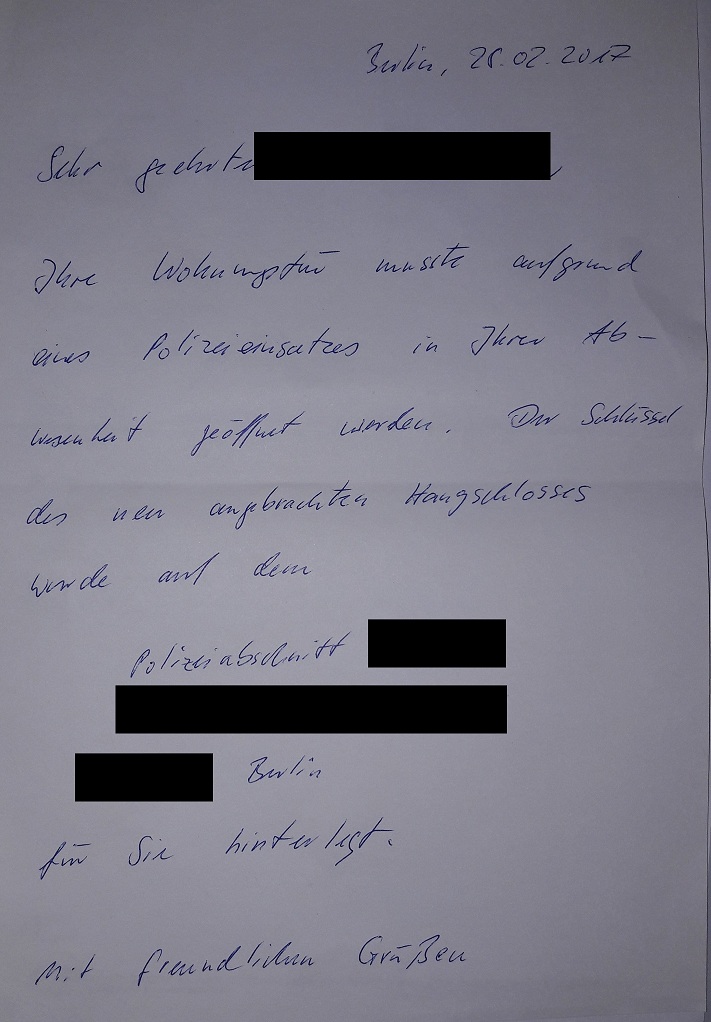 Berlin, 28.02.2017
Sehr geehrte
Ihre Wohnungstür musste aufgrund
eines Polizeieinsatzes in Ihrer Ab-
wesenheit geöffnet werden. Der Schlüssel
des neu angebrachten Hangschlosses
wurde auf dem
Polizeiabschnitt
Berlin
für Sie hinterlegt.
Mit freundlichen Grüßen